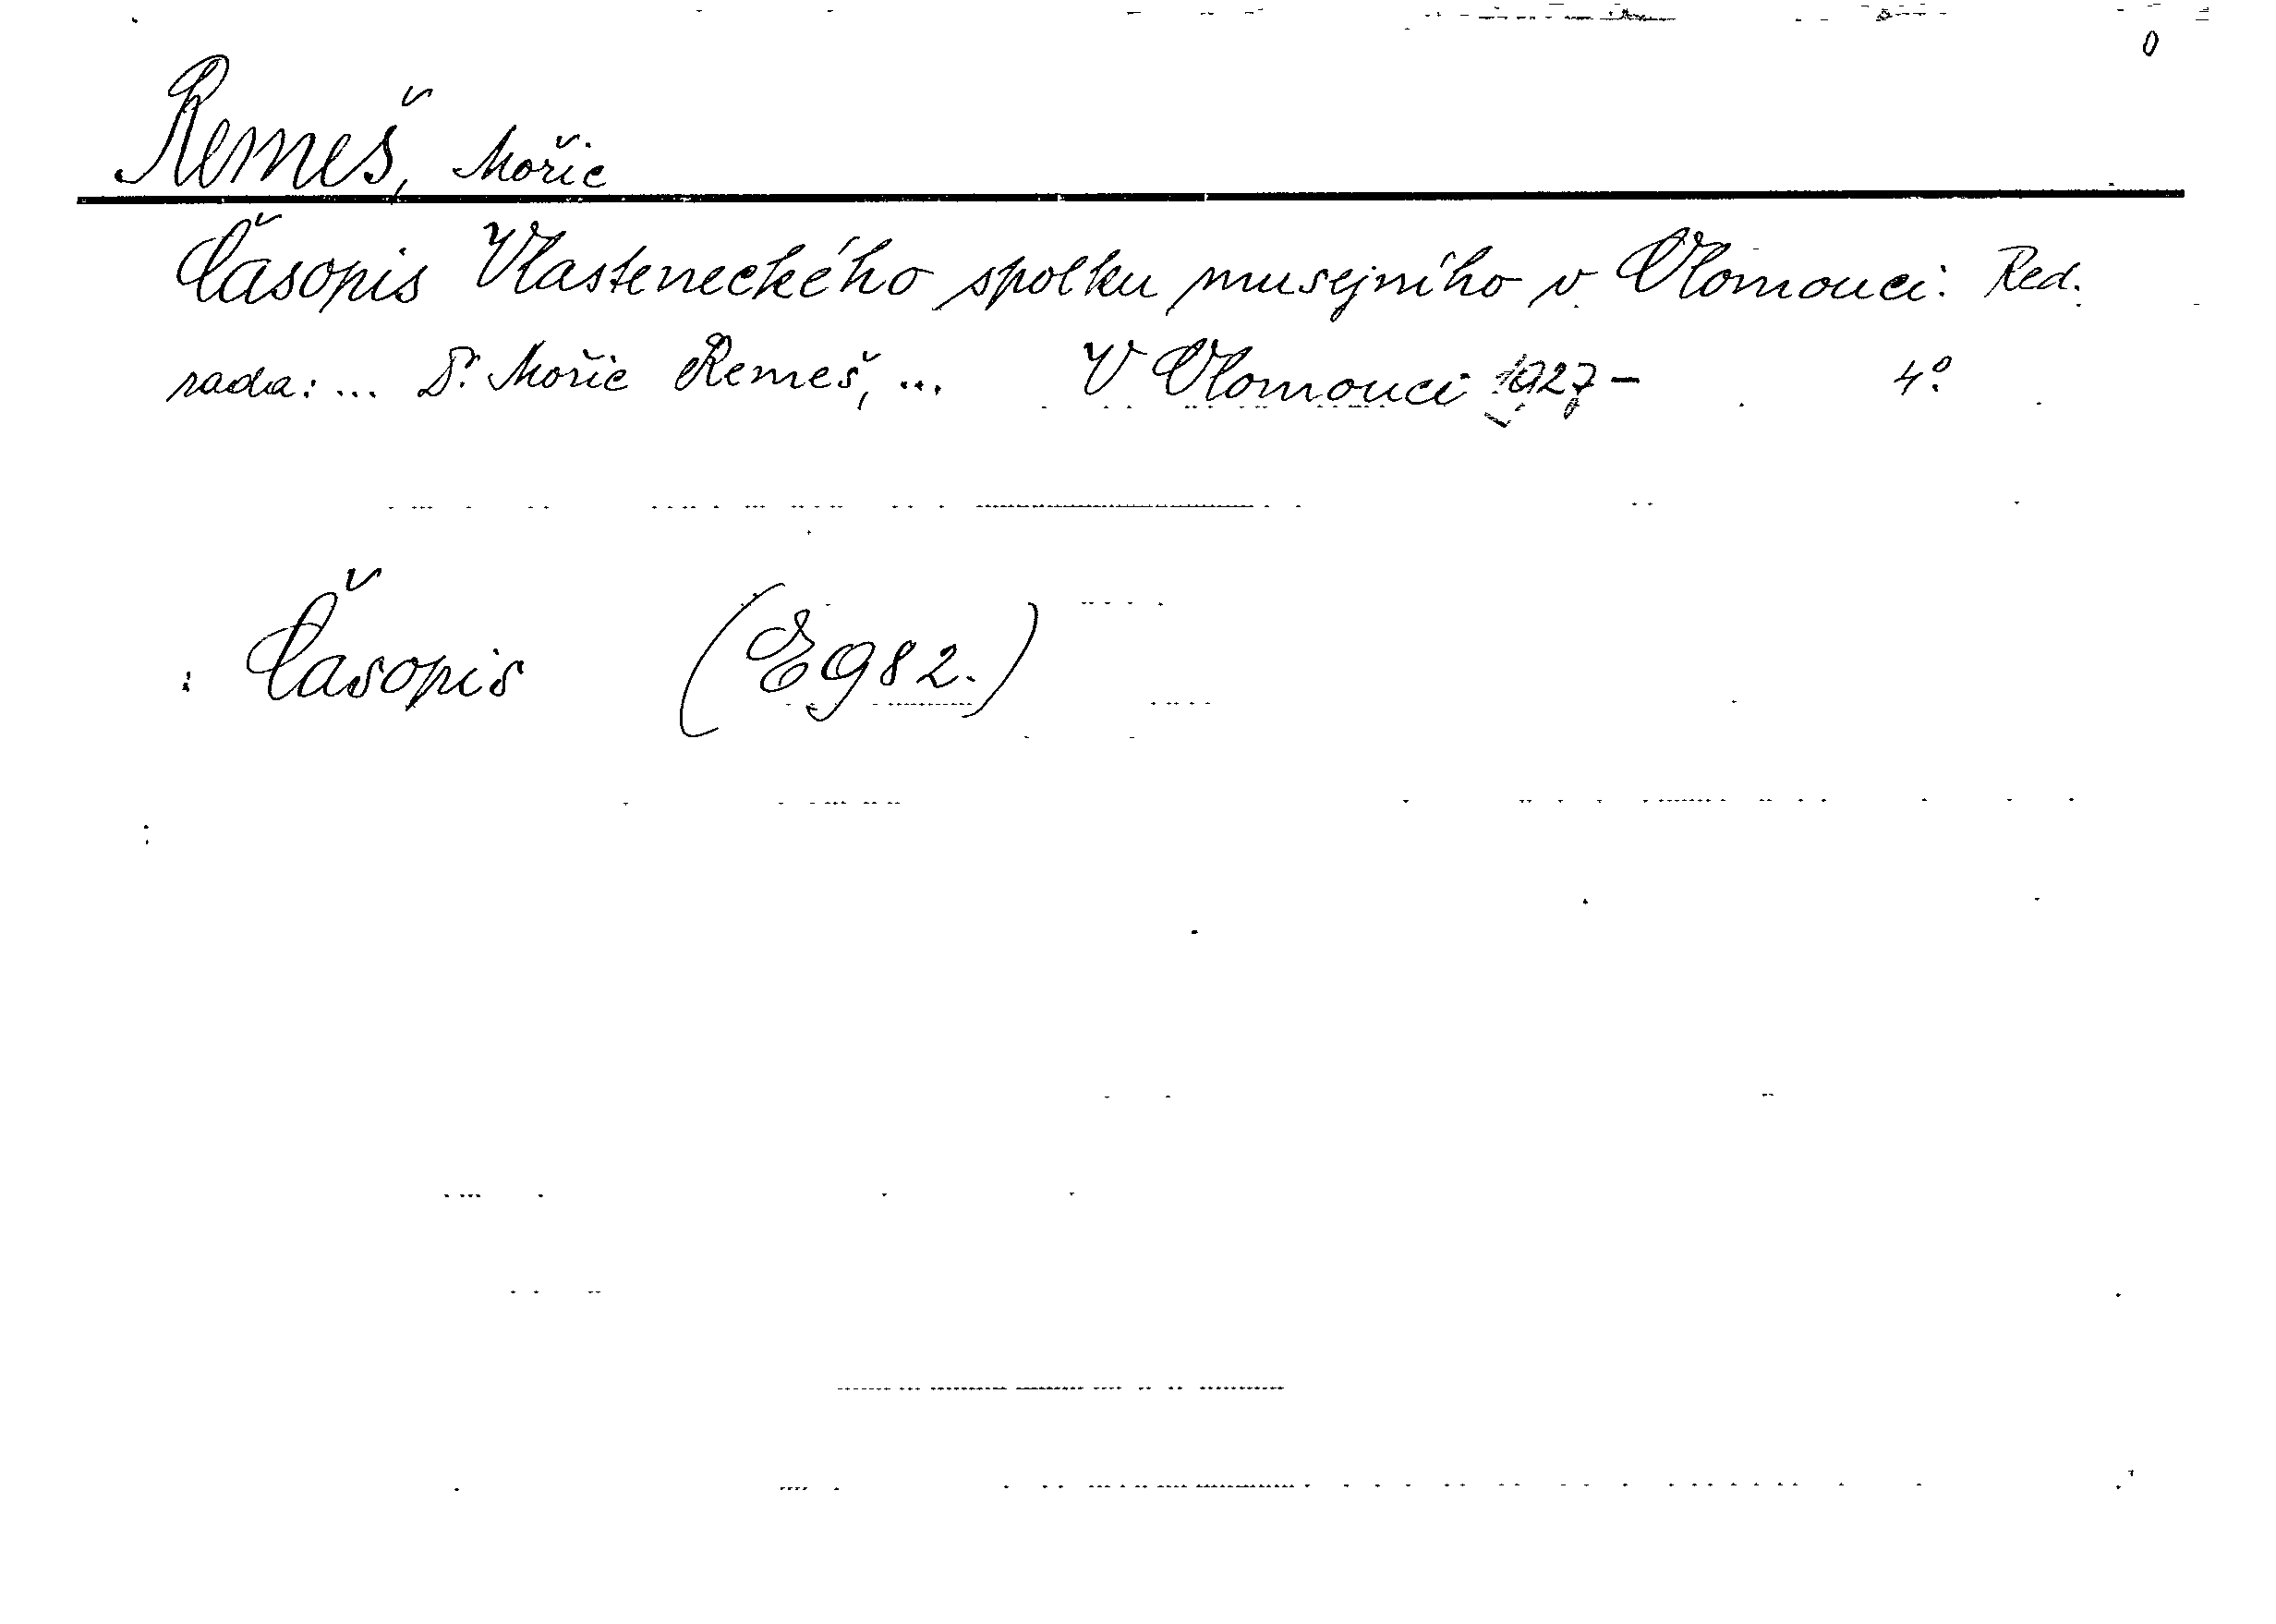 0
Remeš, Mořic
Časopis Vlasteneckého spolku musejního v Olomouci. Red.
rada: ... Dr. Mořic Remeš, ... V Olomouci 1927 – 4°.
: Časopis (E 982.)